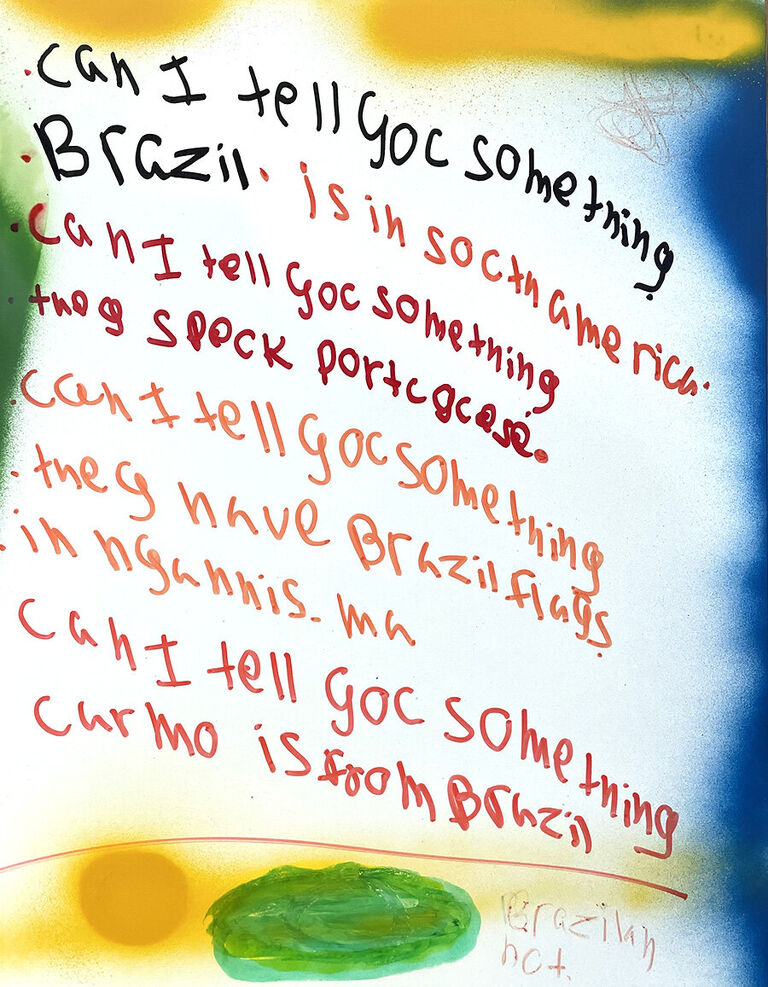 can I tell goc something
Brazil. is in socth america.
can I tell goc something
they speck portcgcese.
can I tell goc something
they have Brazil flags
in hyannis. ma
can I tell goc something
carmo is from Brazil
Brazilan
nct.